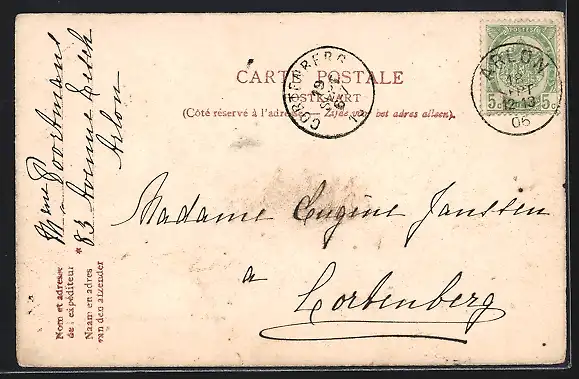 CARTE POSTALE
POSTKAART
(Côté réservé à l'adresse — Zijde van het adres alleen).
CORTENBERG
19
SEPT
ARLON
18
SEPT
12-13
06
5c 5c
Madame Eugène Janssen
à
Cortenberg
Mme Poortmans
83 Avenue
Arlon
Nom et adresse
de l'expéditeur
Naam en adres
van den afzender